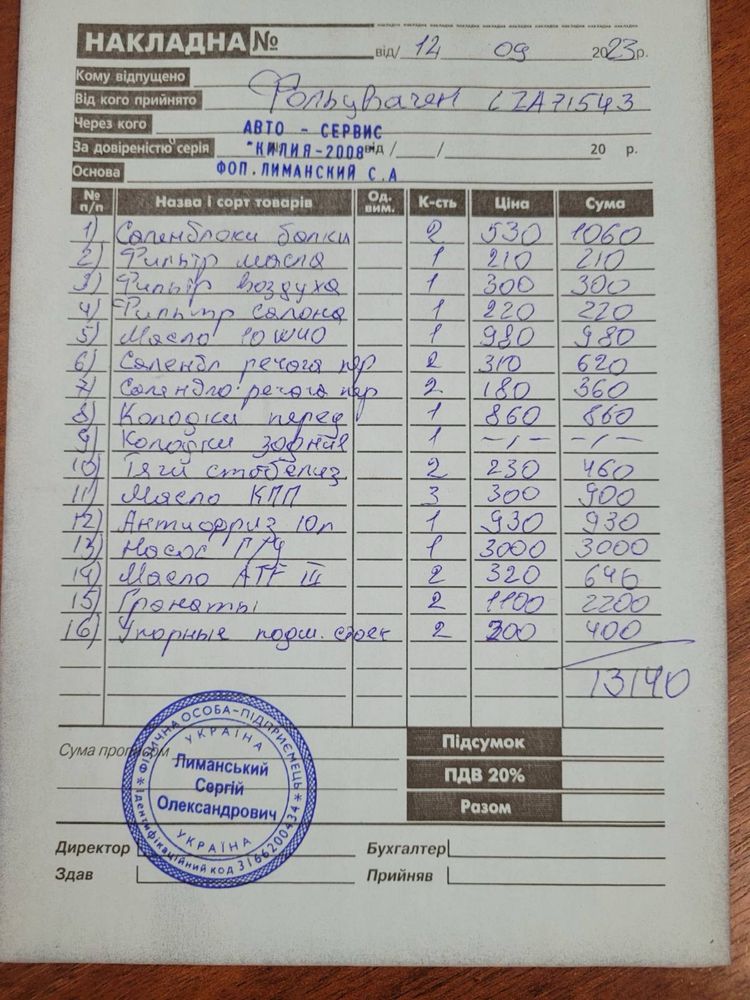 НАКЛАДНА № від/ 12 09 2023р.
Кому відпущено
Від кого прийнято Фольцваген
Через кого АВТО - СЕРВИС
За довіреністю серія "КИЛИЯ-2008" від / / 20 р.
Основа ФОП.ЛИМАНСКИЙ С.А
№ п/п Назва і сорт товарів Од. вим. К-сть Ціна Сума
1) Саленблоки балки 2 530 1060
2) Фильтр масла 1 210 210
3) Фильтр воздуха 1 300 300
4) Фильтр салона 1 220 220
5) Масло 10W40 1 980 980
6) Саленбл речага пер 2 310 620
7) Саленбло речага пер 2 180 360
8) Колодки перед 1 860 860
9) Колодки задние 1 -,- -,-
10) Тяги стабелиз 2 230 460
11) Масло КПП 3 300 900
12) Антифриз 10л 1 930 930
13) Насос ГРЧ 1 3000 3000
14) Масло ATF III 2 320 640
15) Гранаты 2 1100 2200
16) Упорные подш. стоек 2 200 400
13140
Сума прописом
Підсумок
ПДВ 20%
Разом
ФІЗИЧНА ОСОБА-ПІДПРИЄМЕЦЬ
УКРАЇНА
Лиманський
Сергій
Олександрович
УКРАЇНА
Ідентифікаційний код 3166200434
Директор Бухгалтер
Здав Прийняв